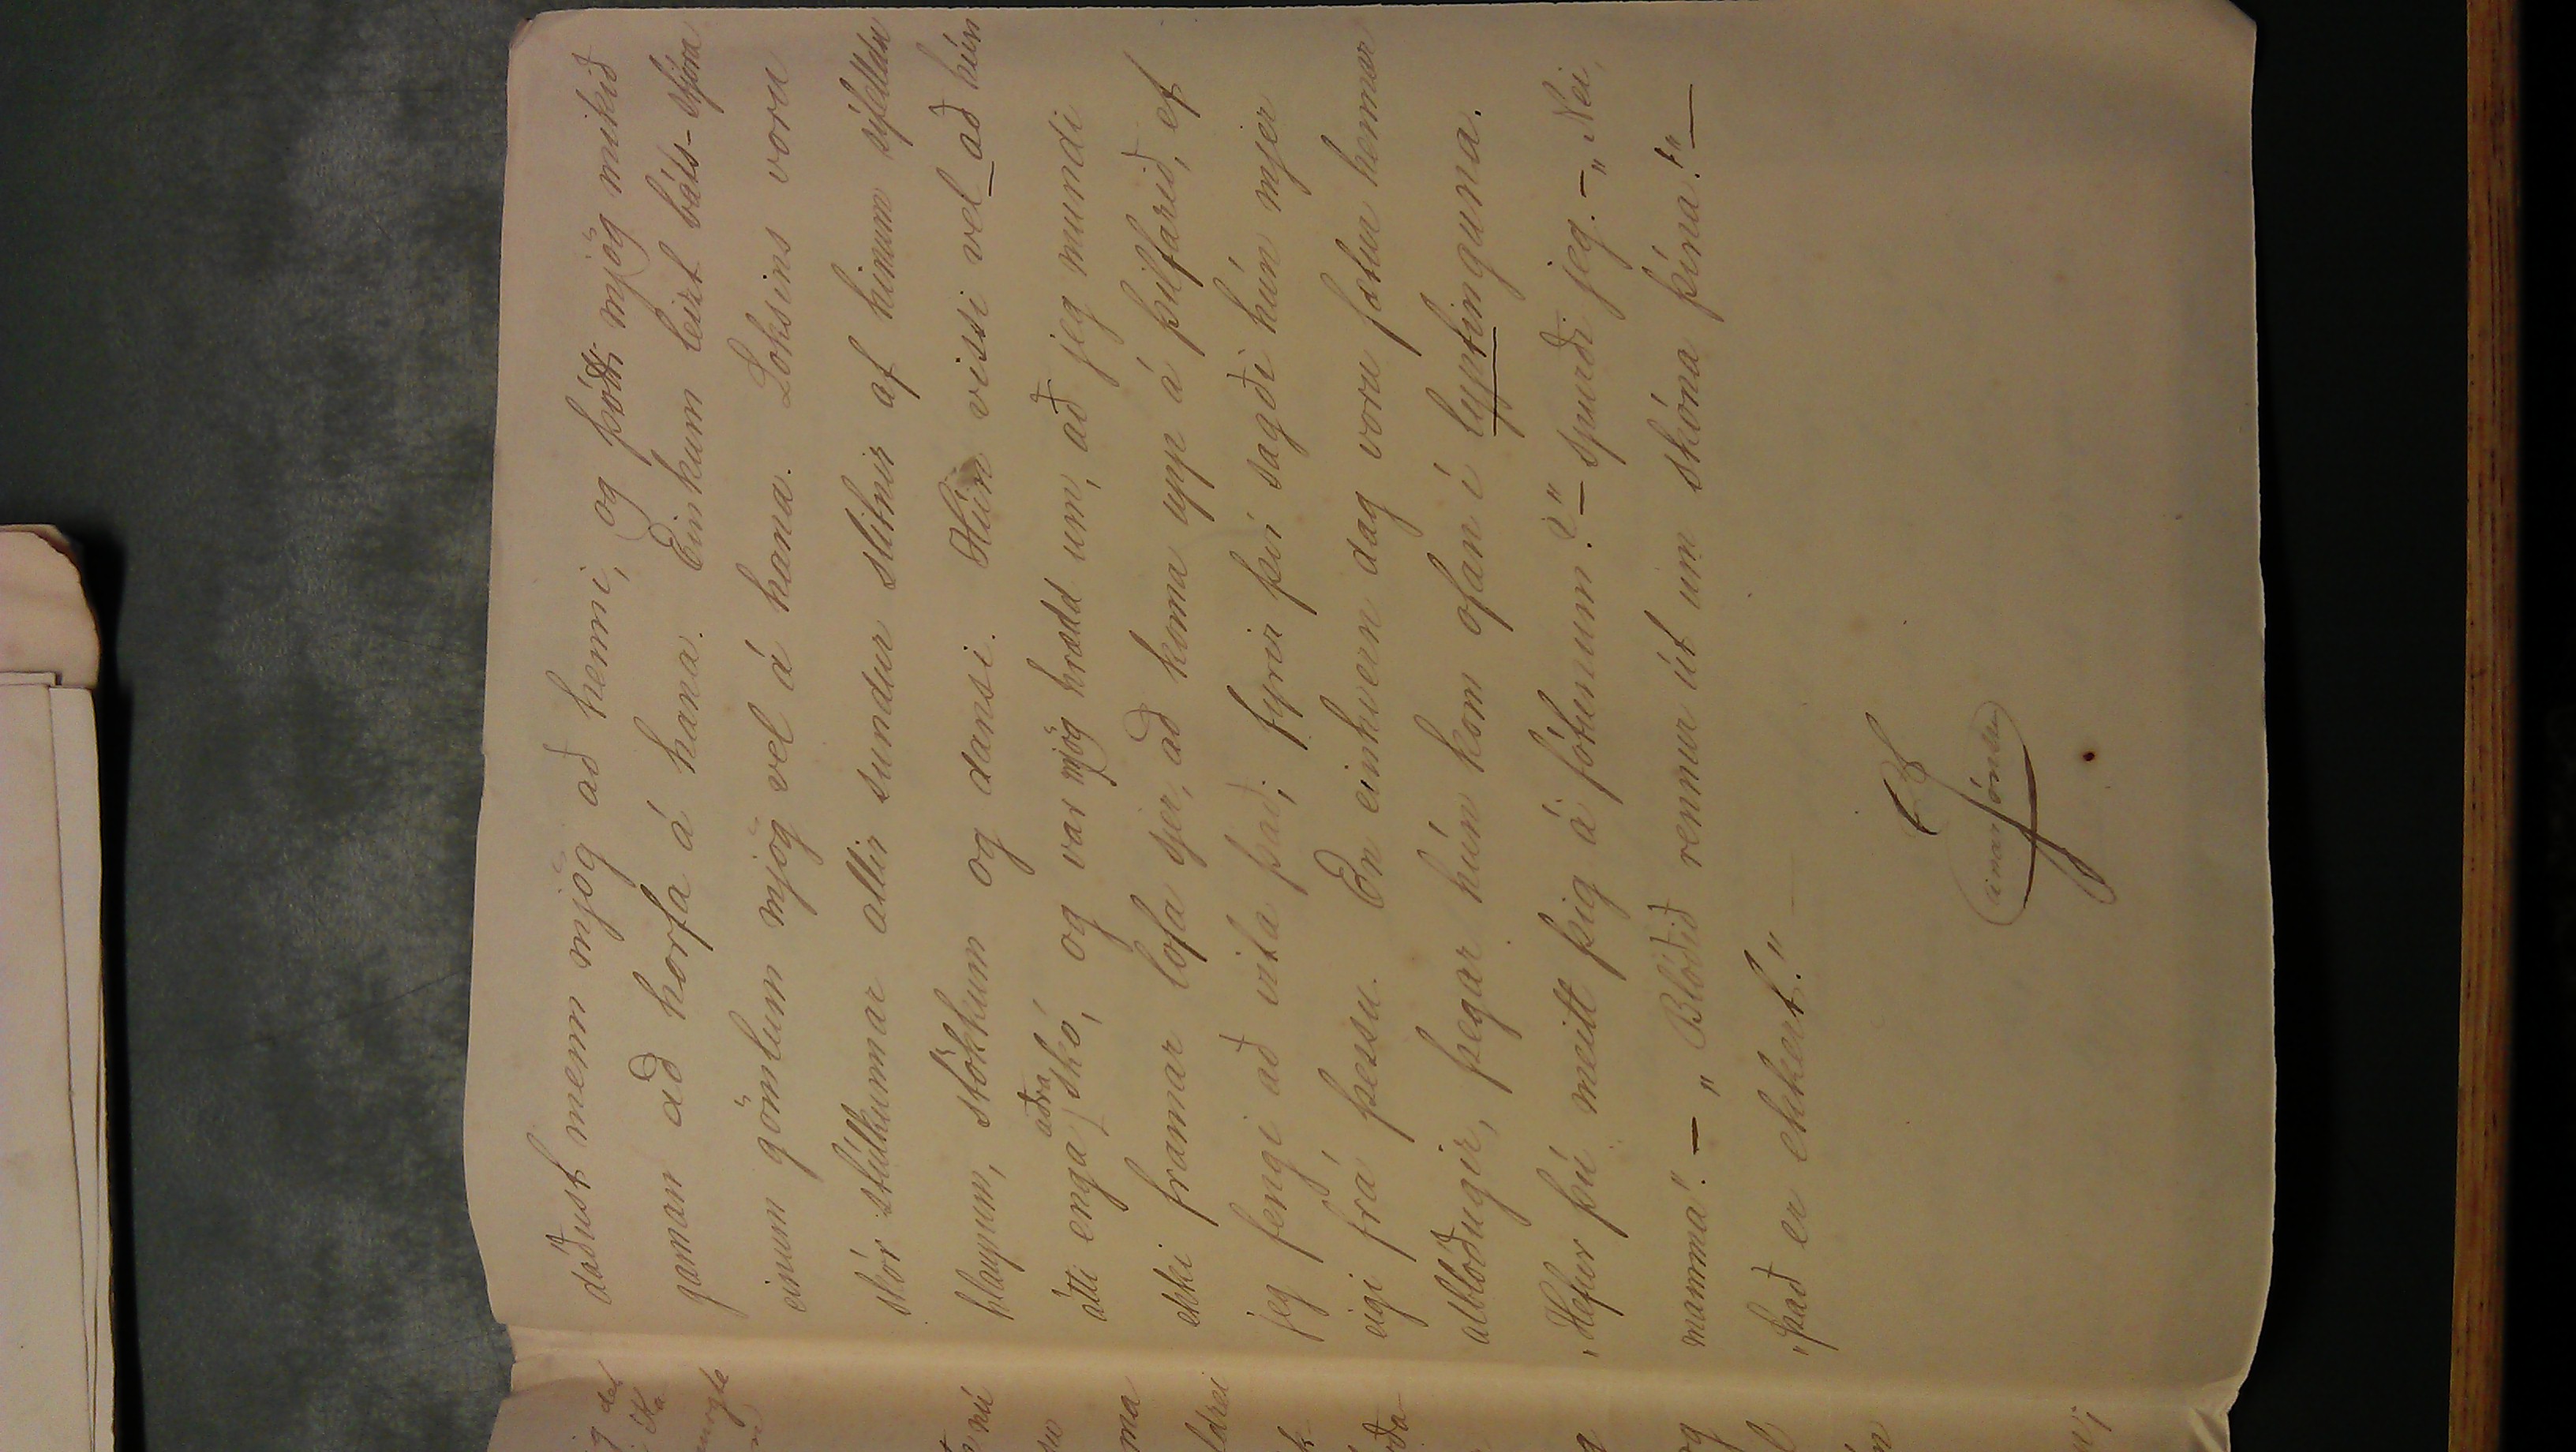 dáðust menn mjög að henni, og þótti mjög mikið
gaman að horfa á hana. Einkum leizt báts-stjóra
einum gömlum mjög vel á hana. Loksins voru
skór stúlkunnar allir sundur slitnir af hinum sífelldu
hlaupum, stökkum og dansi. Hún vissi vel að hún
átti enga aðra skó, og var mjög hrædd um, að jeg mundi
ekki framar lofa sjer, að koma upp á þilfarið, ef
jeg fengi að vita það; fyrir því sagði hún mjer
eigi frá þessu. En einhvern dag voru fætur hennar
alblóðugir, þegar hún kom ofan í lyptinguna.
„Hefur þú meitt þig á fótunum?" – spurði jeg. – „Nei,
mamma". – „Blóðið rennur út um skóna þína!" –
„það er ekkert."
Einar Jónsson